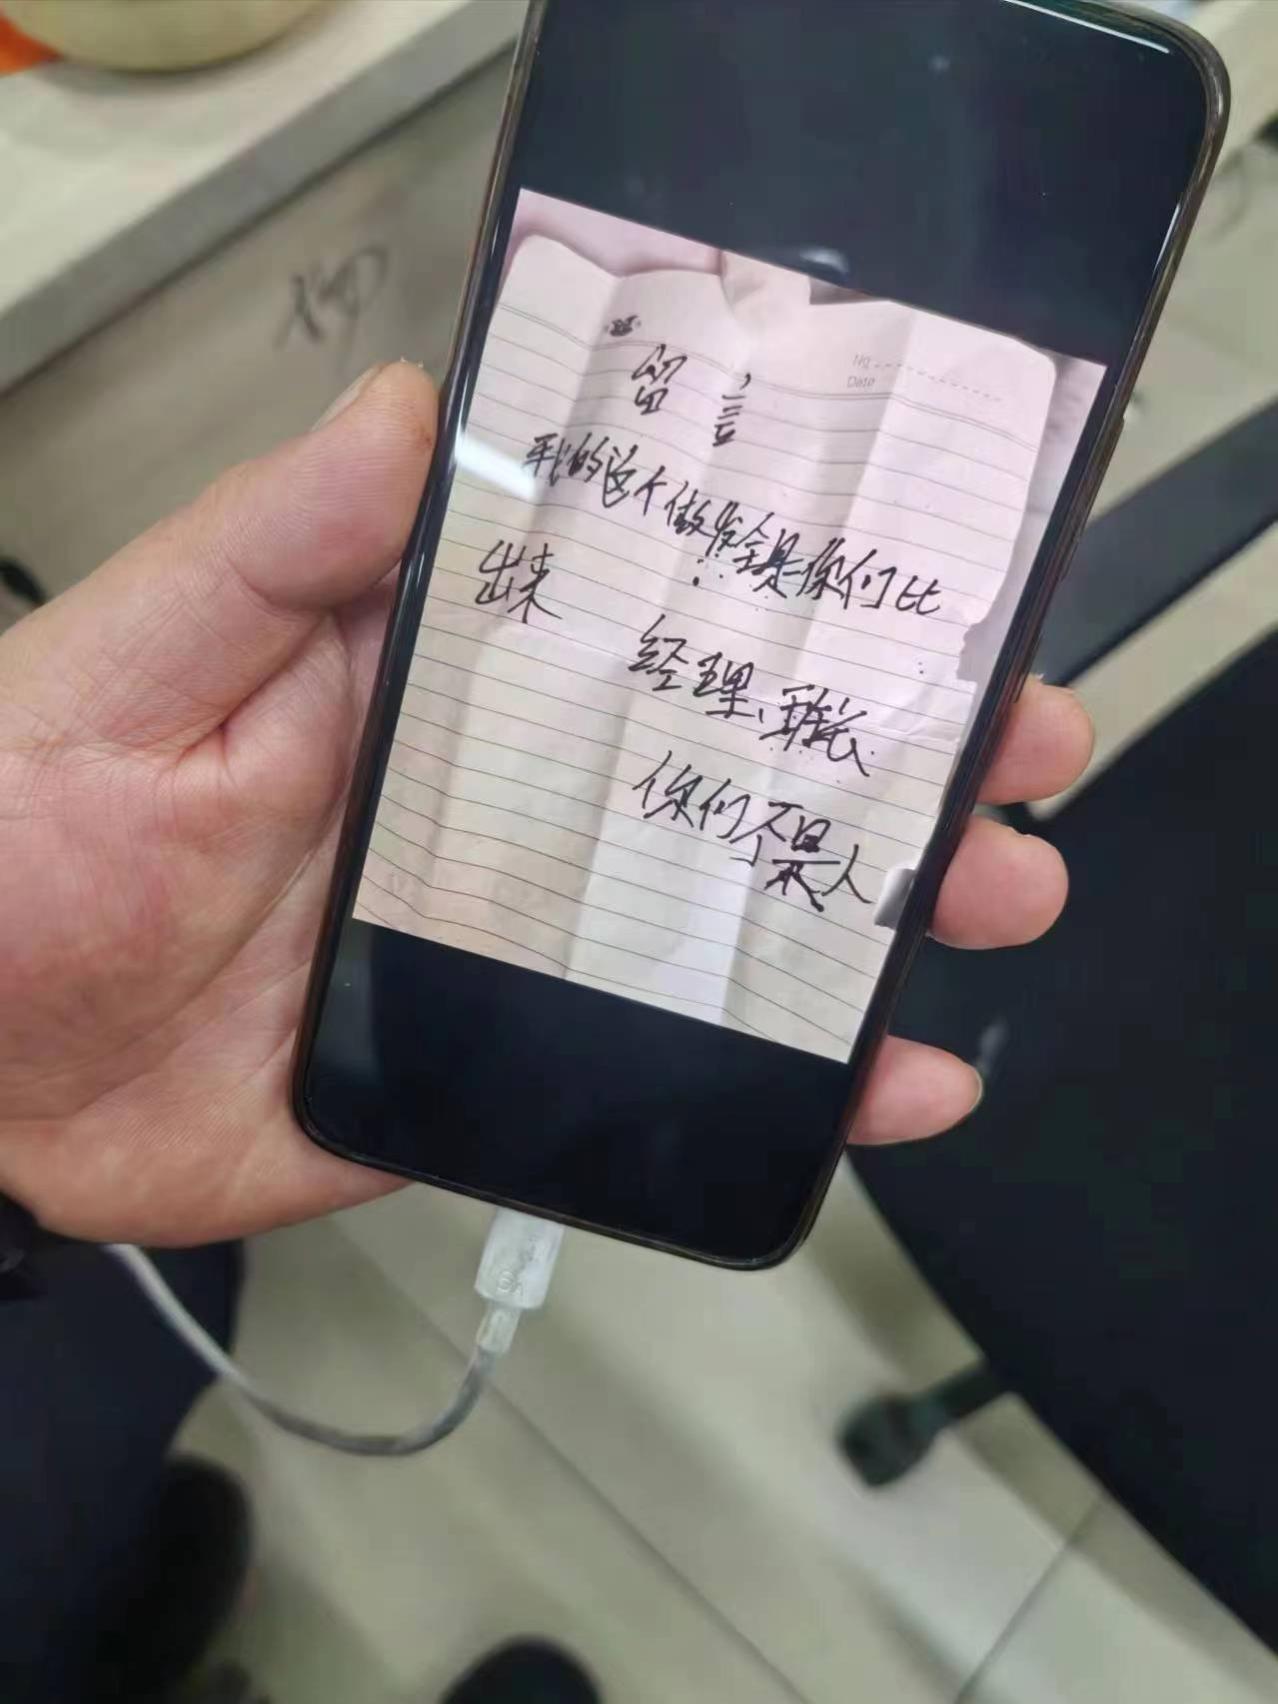 No
Date
留言
我的这个做发全是你们比
出来
经理、班长、
你们不是人